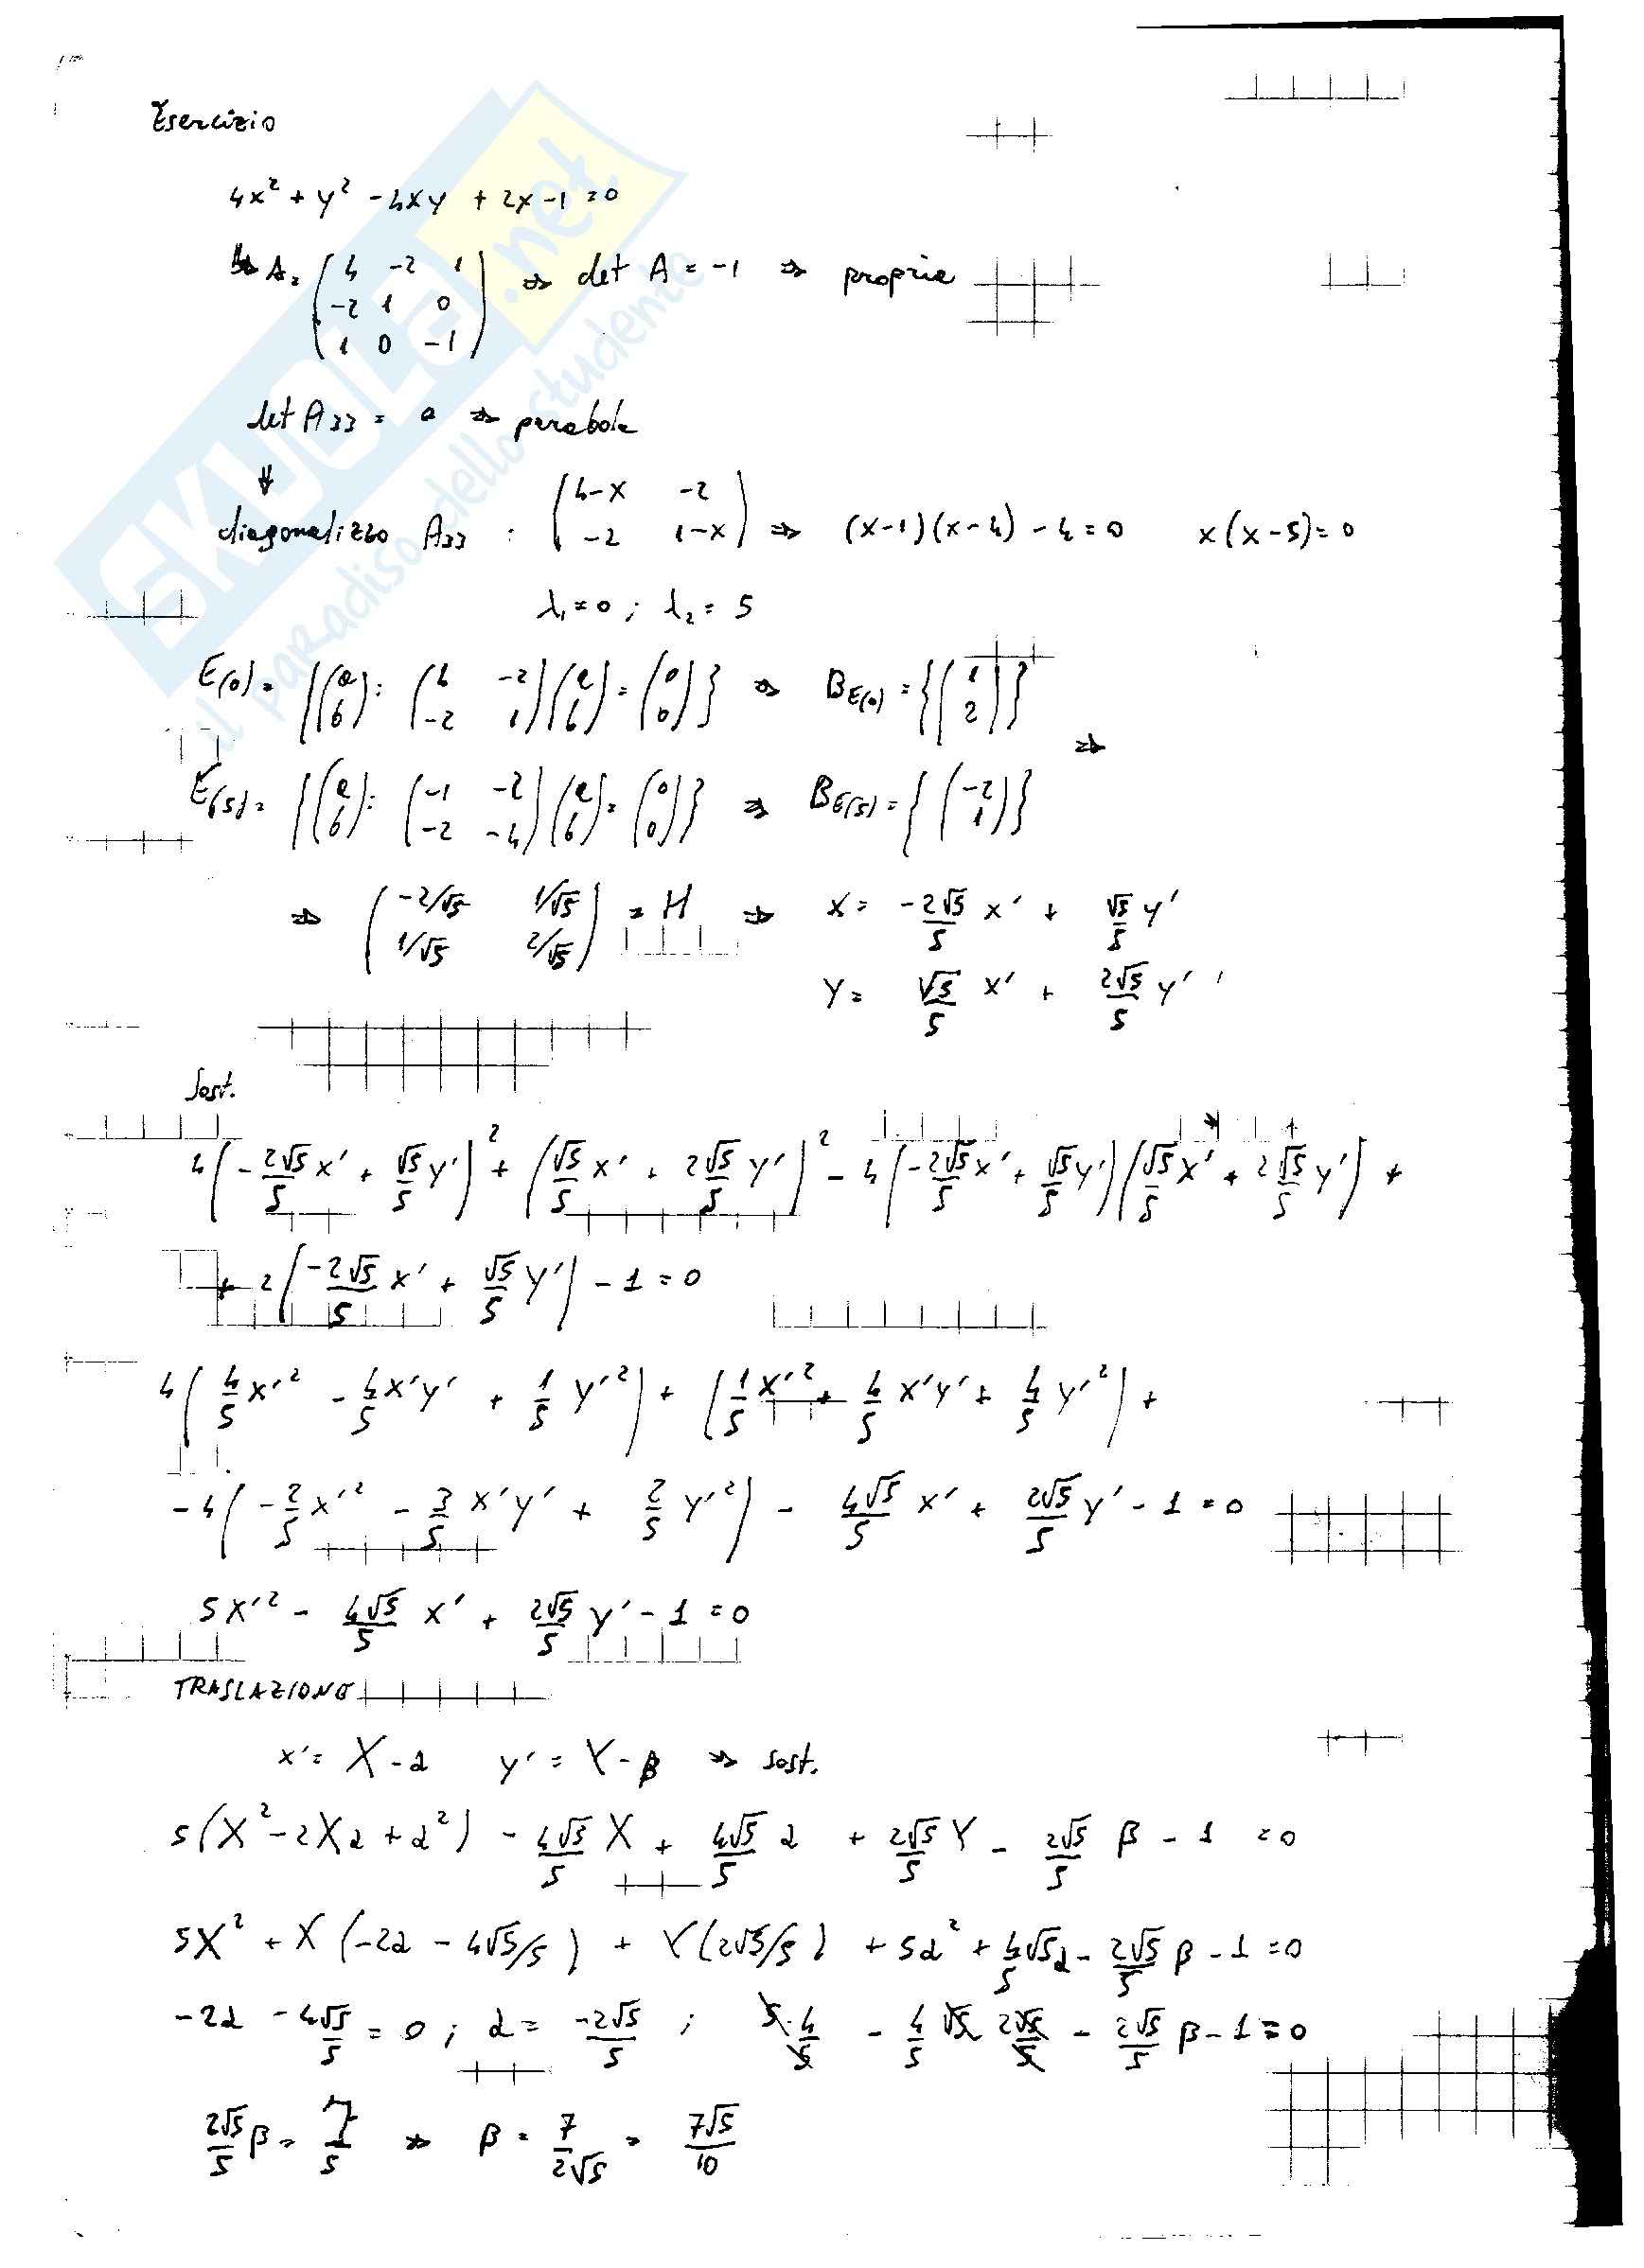 Esercizio
4x² + y² - 4xy + 2x - 1 = 0
A = (4 -2 1 / -2 1 0 / 1 0 -1) ⇒ det A = -1 ⇒ propria
det A33 = 0 ⇒ parabola
⇓
diagonalizzo A33 : (4-x -2 / -2 1-x) ⇒ (x-1)(x-4) - 4 = 0 x(x-5) = 0
λ₁ = 0 ; λ₂ = 5
E(0) = {(a / b) : (4 -2 / -2 1)(a / b) = (0 / 0)} ⇒ B E(0) = {(1 / 2)}
⇒
E(5) = {(a / b) : (-1 -2 / -2 -4)(a / b) = (0 / 0)} ⇒ B E(5) = {(-2 / 1)}
⇒ (-2/√5 1/√5 / 1/√5 2/√5) = H ⇒ x = -2√5/5 x' + √5/5 y'
y = √5/5 x' + 2√5/5 y'
Sost.
4(-2√5/5 x' + √5/5 y')² + (√5/5 x' + 2√5/5 y')² - 4(-2√5/5 x' + √5/5 y')(√5/5 x' + 2√5/5 y') +
+ 2(-2√5/5 x' + √5/5 y') - 1 = 0
4(4/5 x'² - 4/5 x'y' + 1/5 y'²) + (1/5 x'² + 4/5 x'y' + 4/5 y'²) +
-4(-2/5 x'² - 3/5 x'y' + 2/5 y'²) - 4√5/5 x' + 2√5/5 y' - 1 = 0
5x'² - 4√5/5 x' + 2√5/5 y' - 1 = 0
TRASLAZIONE
x' = X - α y' = Y - β ⇒ sost.
5(X² - 2Xα + α²) - 4√5/5 X + 4√5/5 α + 2√5/5 Y - 2√5/5 β - 1 = 0
5X² + X(-2α - 4√5/5) + Y(2√5/5) + 5α² + 4/5 √5α - 2√5/5 β - 1 = 0
-2α - 4√5/5 = 0 ; α = -2√5/5 ; 5·4/5 - 4/5 √5 2√5/5 - 2√5/5 β - 1 = 0
2√5/5 β = 7/5 ⇒ β = 7/2√5 = 7√5/10
SKUOLA.net
il paradiso dello studente